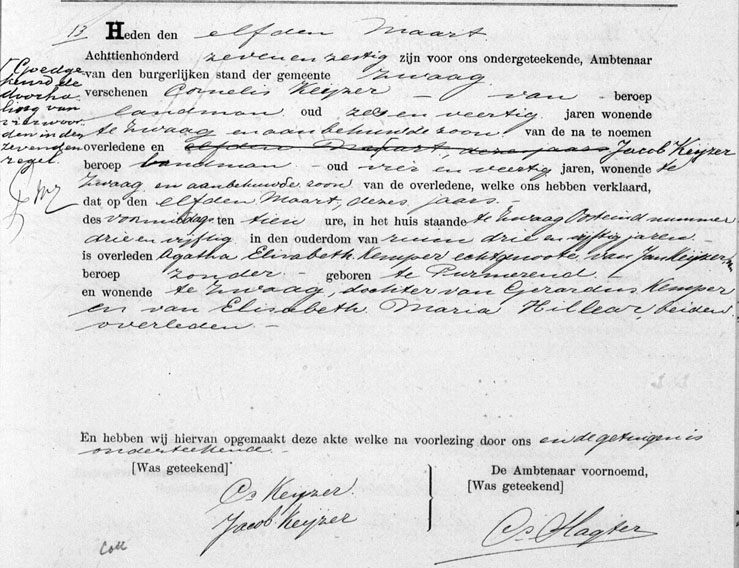 13. Heden den elfden Maart
Achttienhonderd zevenenzestig zijn voor ons ondergeteekende, Ambtenaar
van den burgerlijken stand der gemeente Zwaag
verschenen Cornelis Keijzer – van – beroep
landman oud zes en veertig jaren wonende
te Zwaag en aanbehuwde zoon van de na te noemen
overledene en elfden Maart, dezes jaars Jacob Keijzer
beroep landman – oud vier en veertig jaren, wonende te
Zwaag en aanbehuwde zoon van de overledene, welke ons hebben verklaard,
dat op den elfden Maart, dezes jaars –
des voormiddags ten tien ure, in het huis staande te Zwaag Oosteind nummer
drie en vijftig in den ouderdom van ruim drie en vijftig jaren –
is overleden Agatha Elisabeth Kemper echtgenoote van Jan Keijzer
beroep zonder – geboren te Purmerend
en wonende te Zwaag, dochter van Gerardus Kemper
en van Elisabeth Maria Hillear, beiden
overleden –
Goedge
keurd de
doorha
ling van
vier woor
den in den
zevenden
regel.
En hebben wij hiervan opgemaakt deze akte welke na voorlezing door ons en de getuigen is
onderteekend –
[Was geteekend]
Cs Keyzer.
Jacob Keijzer
De Ambtenaar voornoemd,
[Was geteekend]
Cs Hagter
Coll